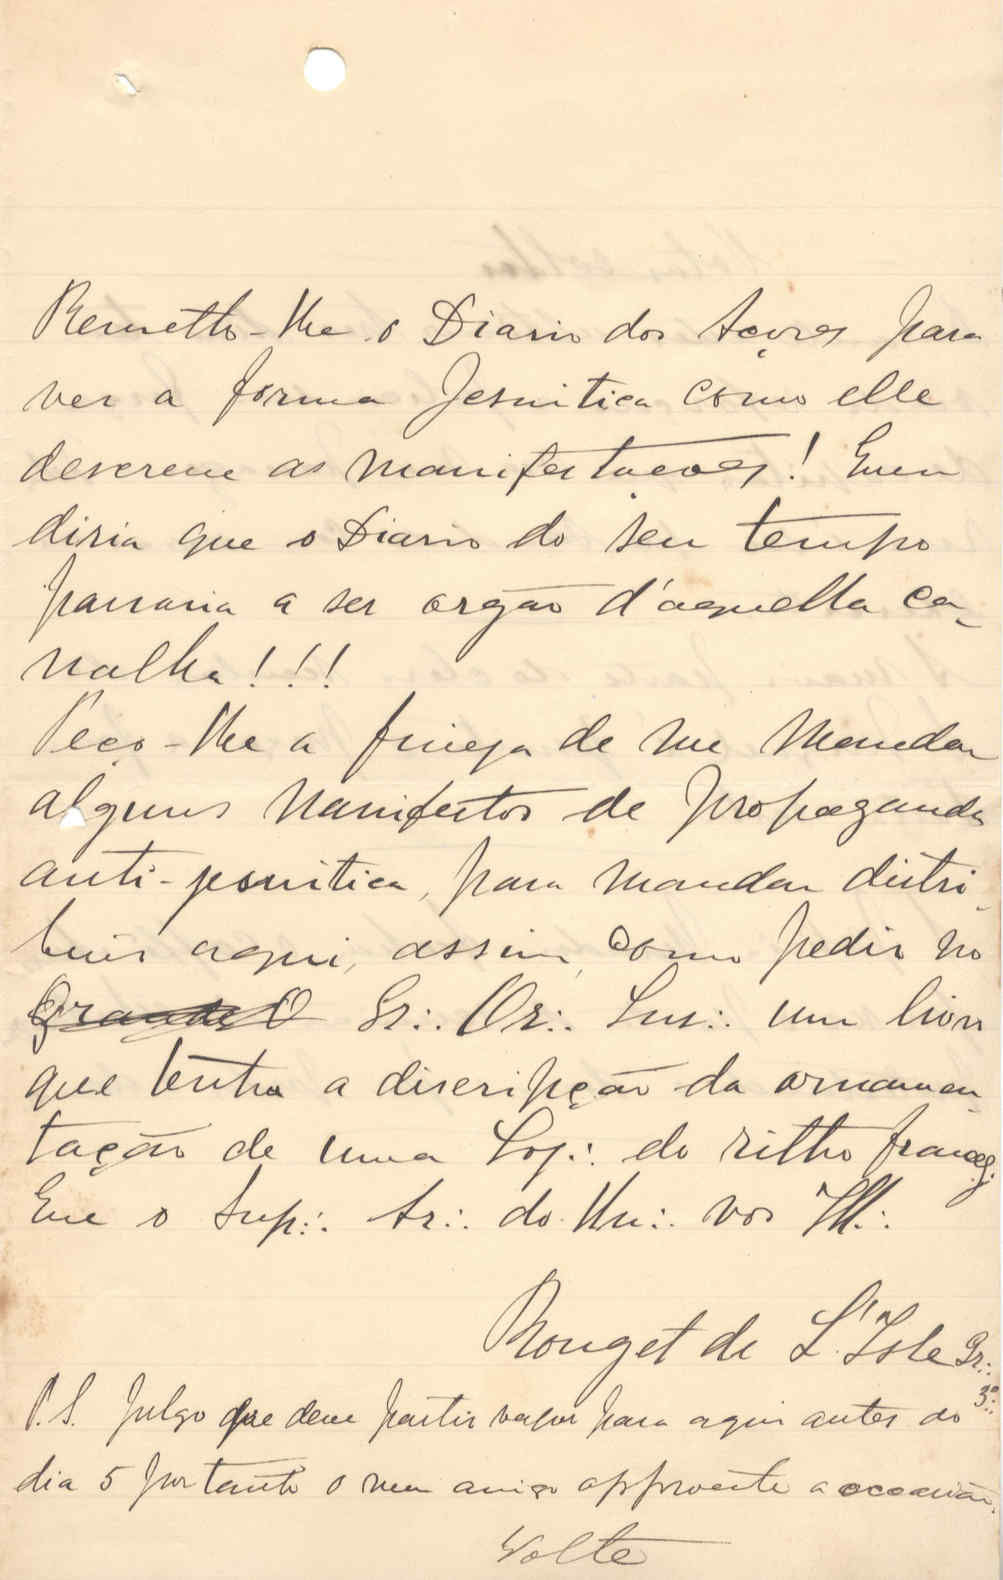 Remetto-lhe o Diario dos Açores para
ver a forma Jesuitica como elle
descreve as manifestações! Quem
diria que o Diario do seu tempo
passaria a ser orgão d'aquella ca-
nalha!!!
Peço-lhe a fineza de me mandar
alguns manifestos de propaganda
anti-jesuitica, para mandar distri-
buir aqui, assim, como pedir no
Grande O Gr∴ Or∴ Lus∴ um livro
que tenha a discripção da ornamen-
tação de uma Loj∴ do ritho francez.
Que o Sup∴ Ar∴ do Un∴ vos Ill∴
Rouget de L'Isle Gr∴
3º∴
P.S. Julgo que deve partir vapor para aqui antes do
dia 5 portanto o meu amigo approveite a occasião.
Volte